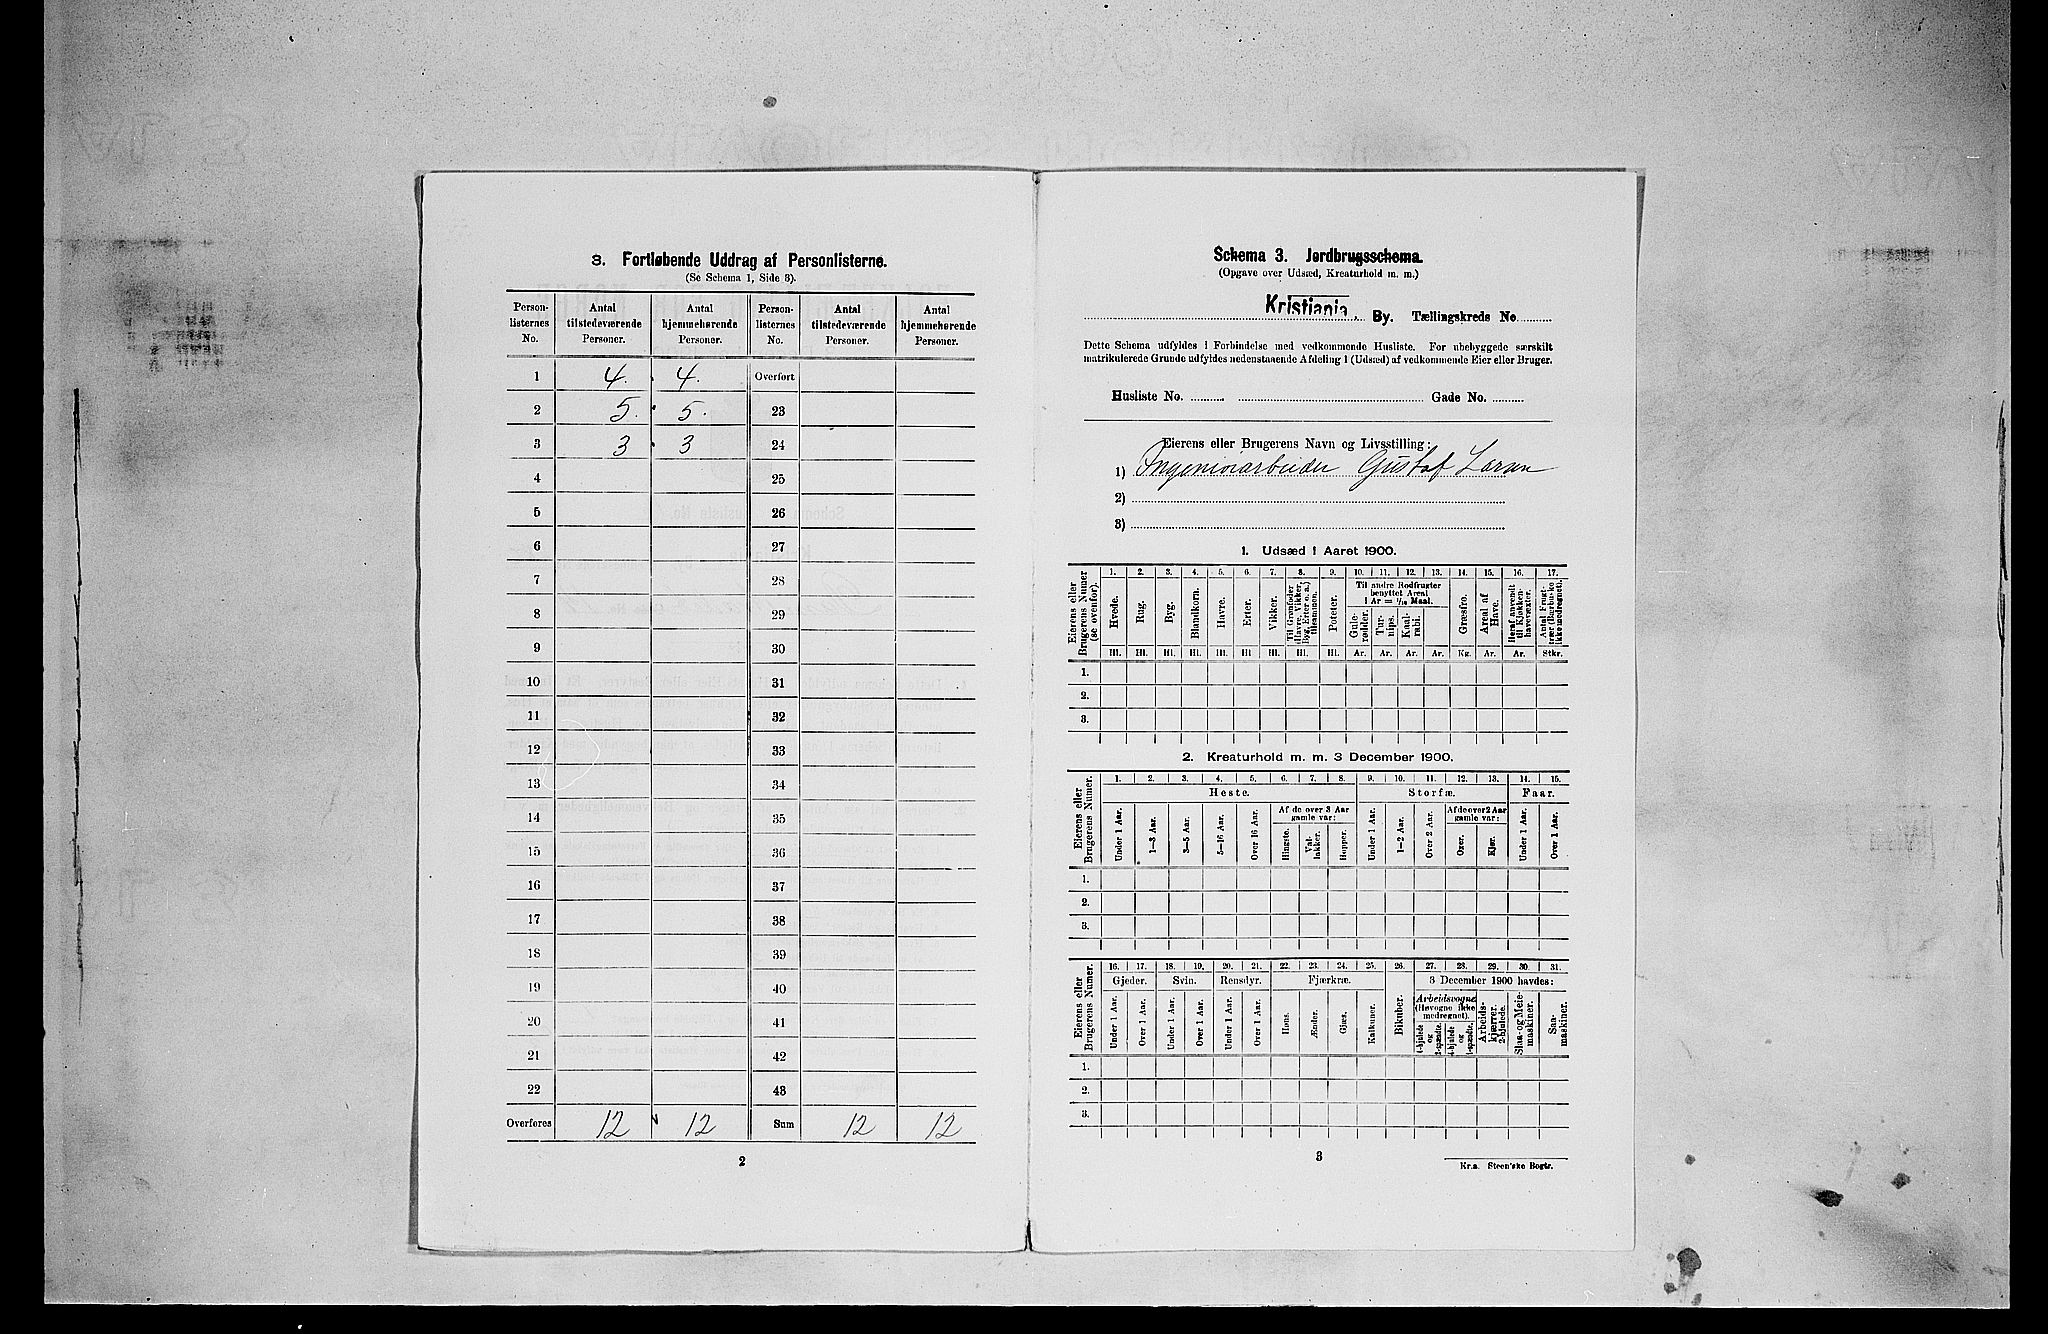 3. Fortløbende Uddrag af Personlisterne.
(Se Schema 1, Side 3).
Person-listernes No. | Antal tilstedeværende Personer. | Antal hjemmehørende Personer. | Person-listernes No. | Antal tilstedeværende Personer. | Antal hjemmehørende Personer.
1 4. 4. Overført
2 5. 5. 23
3 3 3 24
4 25
5 26
6 27
7 28
8 29
9 30
10 31
11 32
12 33
13 34
14 35
15 36
16 37
17 38
18 39
19 40
20 41
21 42
22 43
Overføres 12 12 Sum 12 12
2
Schema 3. Jordbrugsschema.
(Opgave over Udsæd, Kreaturhold m. m.)
Kristiania, By. Tællingskreds No.
Dette Schema udfyldes i Forbindelse med vedkommende Husliste. For ubebyggede særskilt
matrikulerede Grunde udfyldes nedenstaaende Afdeling 1 (Udsæd) af vedkommende Eier eller Bruger.
Husliste No. Gade No.
Eierens eller Brugerens Navn og Livsstilling:
1) Gustaf Larsen
2)
3)
1. Udsæd i Aaret 1900.
Eierens eller Brugerens Numer (se ovenfor).
1. 2. 3. 4. 5. 6. 7. 8. 9. 10. 11. 12. 13. 14. 15. 16. 17.
Hvede. Rug. Byg. Blandkorn. Havre. Erter. Vikker. Til Grønfoder (Havre, Vikker, Byg, Erter o. a.) tilsammen. Poteter.
Til andre Rodfrugter benyttet Areal 1 Ar = 1/10 Maal.
Gule-rødder. Tur-nips. Kaal-rabi. Græsfrø. Areal af Have. Heraf anvendt til Kjøkken-havevæxter. Antal Frugt-trær (Bærbuske ikke medregnet).
Hl. Hl. Hl. Hl. Hl. Hl. Hl. Hl. Hl. Ar. Ar. Ar. Ar. Kg. Ar. Ar. Stkr.
1.
2.
3.
2. Kreaturhold m. m. 3 December 1900.
Eierens eller Brugerens Numer.
1. 2. 3. 4. 5. 6. 7. 8. 9. 10. 11. 12. 13. 14. 15.
Heste. Storfæ. Faar.
Af de over 3 Aar gamle var: Af de over 2 Aar gamle var:
Under 1 Aar. 1—3 Aar. 3—5 Aar. 5—16 Aar. Over 16 Aar. Hingste. Val-lakker. Hopper. Under 1 Aar. 1—2 Aar. Over 2 Aar. Oxer. Kjør. Under 1 Aar. Over 1 Aar.
1.
2.
3.
Eierens eller Brugerens Numer.
16. 17. 18. 19. 20. 21. 22. 23. 24. 25. 26. 27. 28. 29. 30. 31.
Gjeder. Svin. Rensdyr. Fjærkræ. 3 December 1900 havdes:
Arbeidsvogne (Høvogne ikke medregnet).
Under 1 Aar. Over 1 Aar. Under 1 Aar. Over 1 Aar. Under 1 Aar. Over 1 Aar. Høns. Ænder. Gjæs. Kalkuner. Bikuber. 4-hjulede og 2-spændte. 4-hjulede og 1-spændte. Arbeids-kjærrer 2-hjulede. Slaa- og Meie-maskiner. Saa-maskiner.
1.
2.
3.
3
Kr.a. Steen'ske Bogtr.